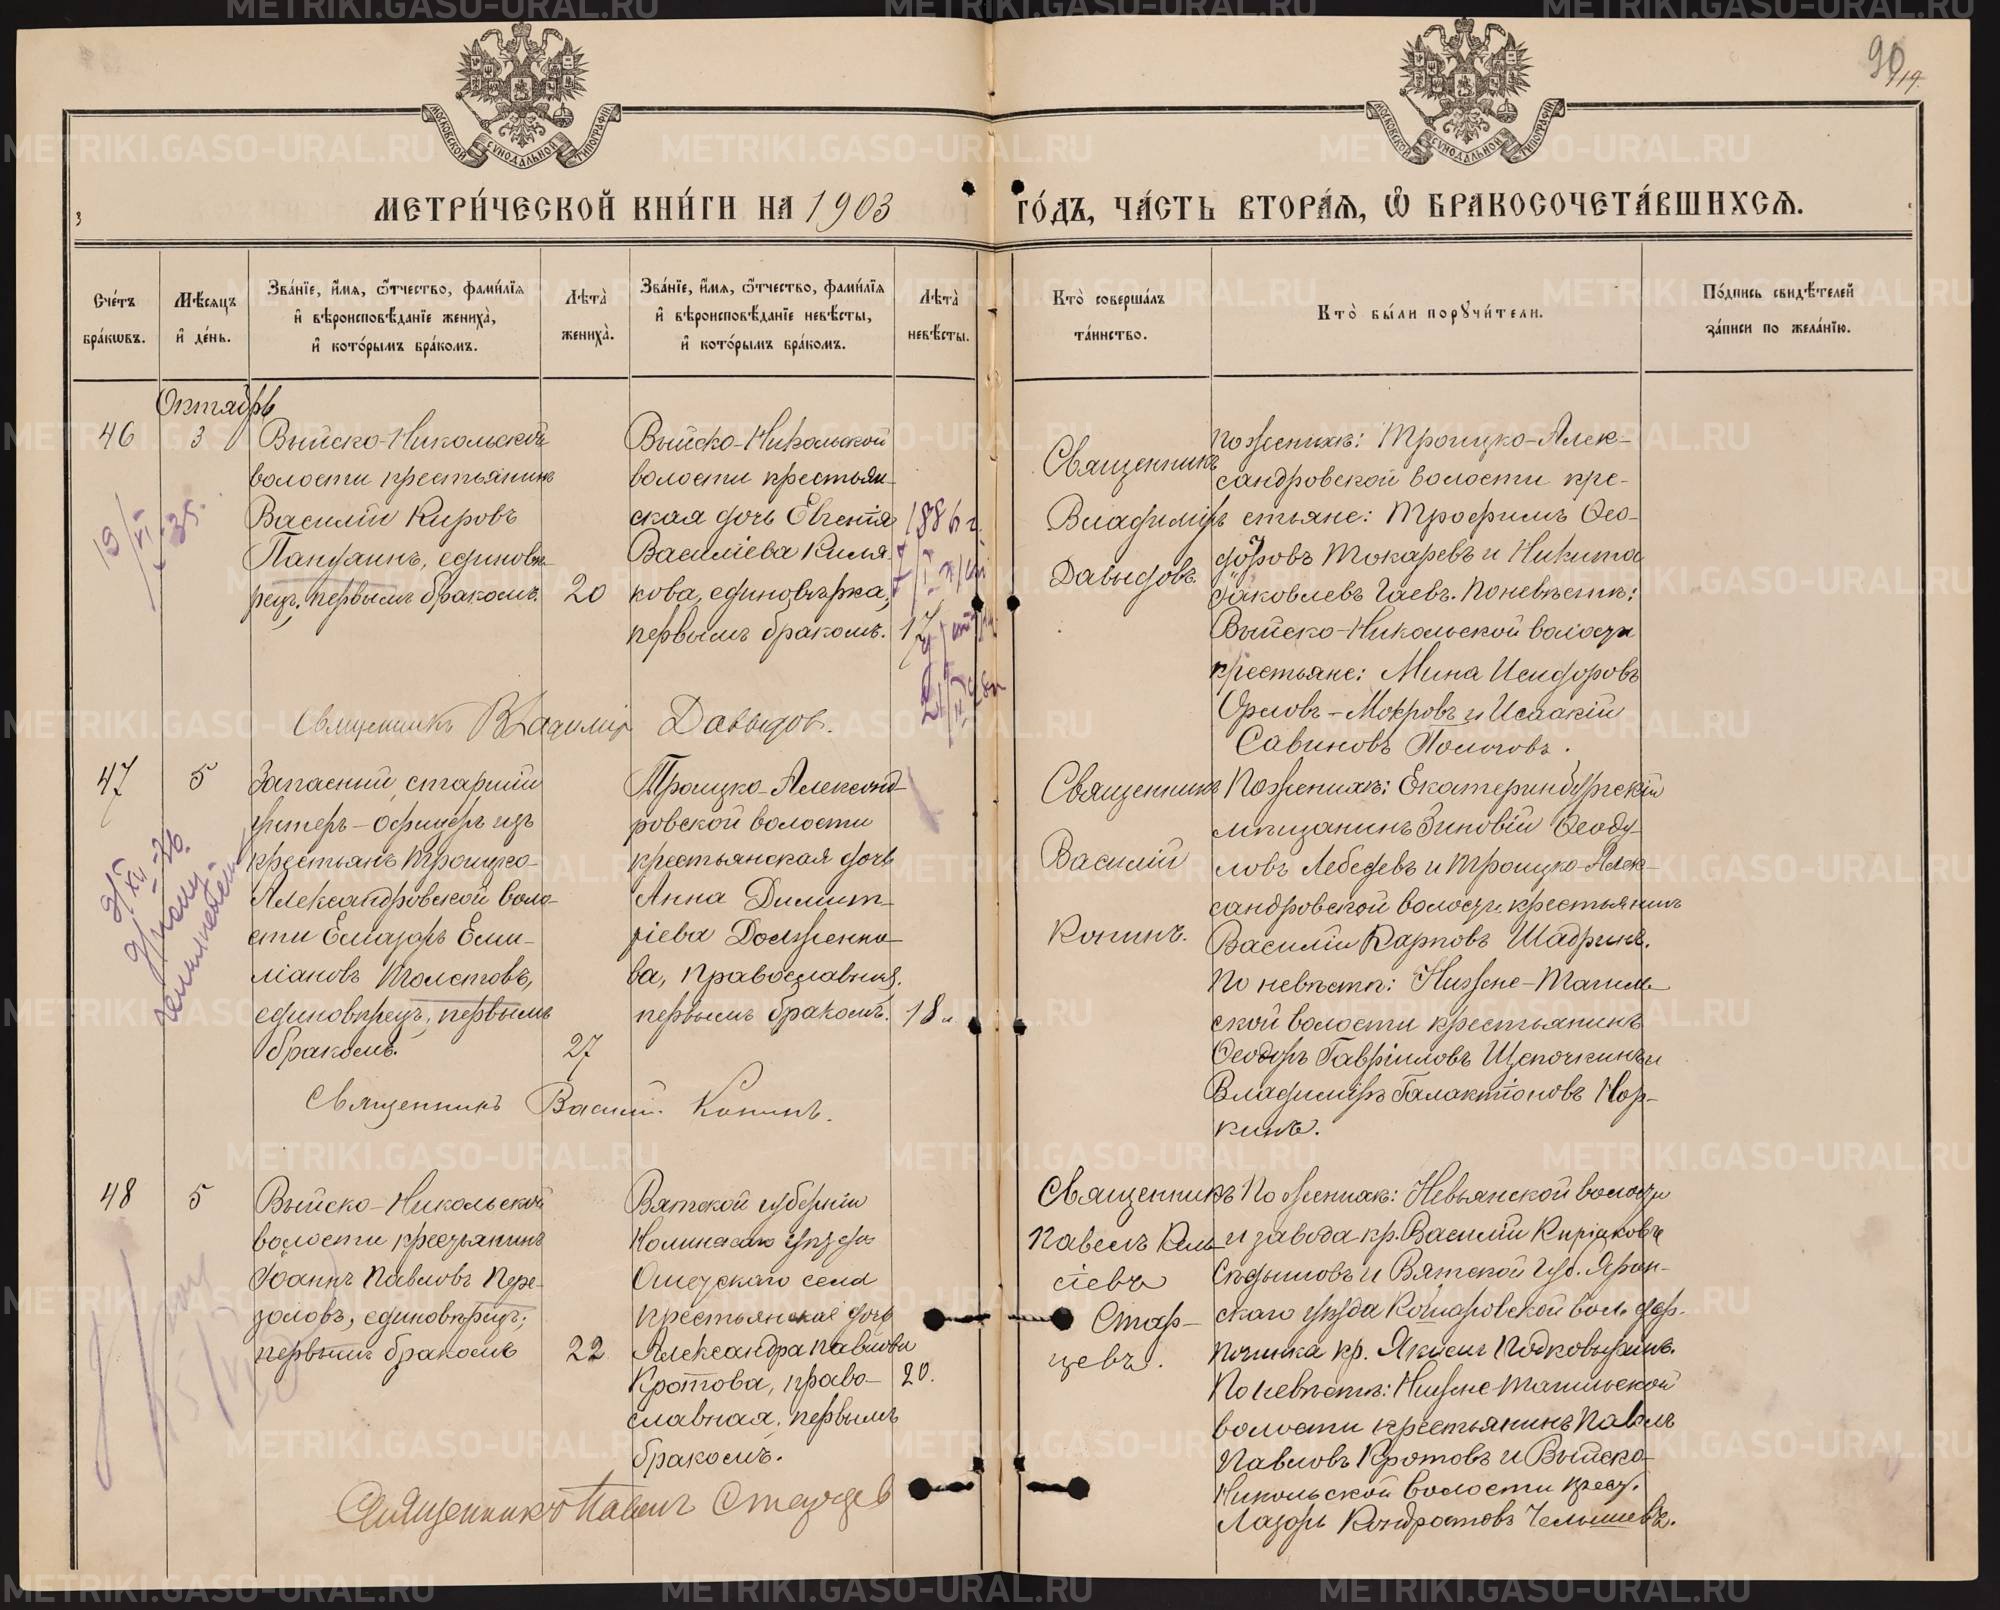 90
МОСКОВСКОЙ СѴНОДАЛЬНОЙ ТИПОГРАФІИ.
МОСКОВСКОЙ СѴНОДАЛЬНОЙ ТИПОГРАФІИ.
МЕТРИ́ЧЕСКОЙ КНИ́ГИ НА 1903
ГО́ДЪ, ЧА́СТЬ ВТОРА́Я, Ѿ БРАКОСОЧЕТА́ВШИХСЯ.
Сче́тъ бра́кѡвъ.
Мѣ́сяцъ и҆ де́нь.
Зва́нїе, и҆́мя, ѻ҆́тчество, фами́лїя и҆ вѣроисповѣ́данїе жениха̀, и҆ кото́рымъ бра́комъ.
Лѣта̀ жениха̀.
Зва́нїе, и҆́мя, ѻ҆́тчество, фами́лїя и҆ вѣроисповѣ́данїе невѣ́сты, и҆ кото́рымъ бра́комъ.
Лѣта̀ невѣ́сты.
Кто̀ соверша́лъ та́инство.
Кто̀ бы́ли порꙋчи́тели.
По́дпись свидѣ́телей за́писи по жела́нїю.
Октябрь
46
3
Выйско-Никольской
волости крестьянинъ
Василій Кировъ
Панфилъ, единовѣ-
рецъ, первымъ бракомъ.
20
Выйско-Никольской
волости крестьян-
ская дочь Евгенія
Василіева Киля-
кова, единовѣрка,
первымъ бракомъ.
17
1886 г.
Священникъ
Владиміръ
Давыдовъ
По женихѣ: Троицко-Алек-
сандровской волости кре-
стьяне: Трофимъ Ѳео-
доровъ Токаревъ и Никита
Іаковлевъ Гаевъ. По невѣстѣ:
Выйско-Никольской волости
крестьяне: Мина Исидоровъ
Орловъ-Мокровъ и Исаакій
Савиновъ Пологовъ.
Священникъ Владиміръ Давыдовъ.
47
5
Запасный старшій
унтеръ-офицеръ изъ
крестьянъ Троицко-
Александровской воло-
сти Елиазаръ Еми-
ліановъ Толстовъ,
единовѣрецъ, первымъ
бракомъ.
27
Троицко-Александ-
ровской волости
крестьянская дочь
Анна Димит-
ріева Долженко-
ва, православная,
первымъ бракомъ.
18
Священникъ
Василій
Копинъ.
По женихѣ: Екатеринбургскій
мѣщанинъ Зиновій Ѳеоду-
ловъ Лебедевъ и Троицко-Алек-
сандровской волости крестьянинъ
Василій Карповъ Шадринъ.
По невѣстѣ: Нижне-Тагиль-
ской волости крестьянинъ
Ѳеодоръ Гавріиловъ Щепочкинъ и
Владиміръ Галактіоновъ Нор-
кинъ.
Священникъ Василій Копинъ.
48
5
Выйско-Никольской
волости крестьянинъ
Іоаннъ Павловъ Пере-
золовъ, единовѣрецъ,
первымъ бракомъ
22
Вятской губерніи
Нолинскаго уѣзда
села
крестьянская дочь
Александра Павлова
Кротова, право-
славная, первымъ
бракомъ.
20.
Священникъ
Павелъ
сіевъ
Стар-
цевъ.
По женихѣ: Невьянской волости
и завода кр. Василій Киріаковъ
Сѣдышовъ и Вятской губ. Яран-
скаго уѣзда вол. дер.
Починка кр. Якимъ Подковыринъ.
По невѣстѣ: Нижне-Тагильской
волости крестьянинъ Павелъ
Павловъ Кротовъ и Выйско-
Никольской волости крест.
Лазарь Кондратовъ Челышевъ.
Священникъ Павелъ Старцевъ